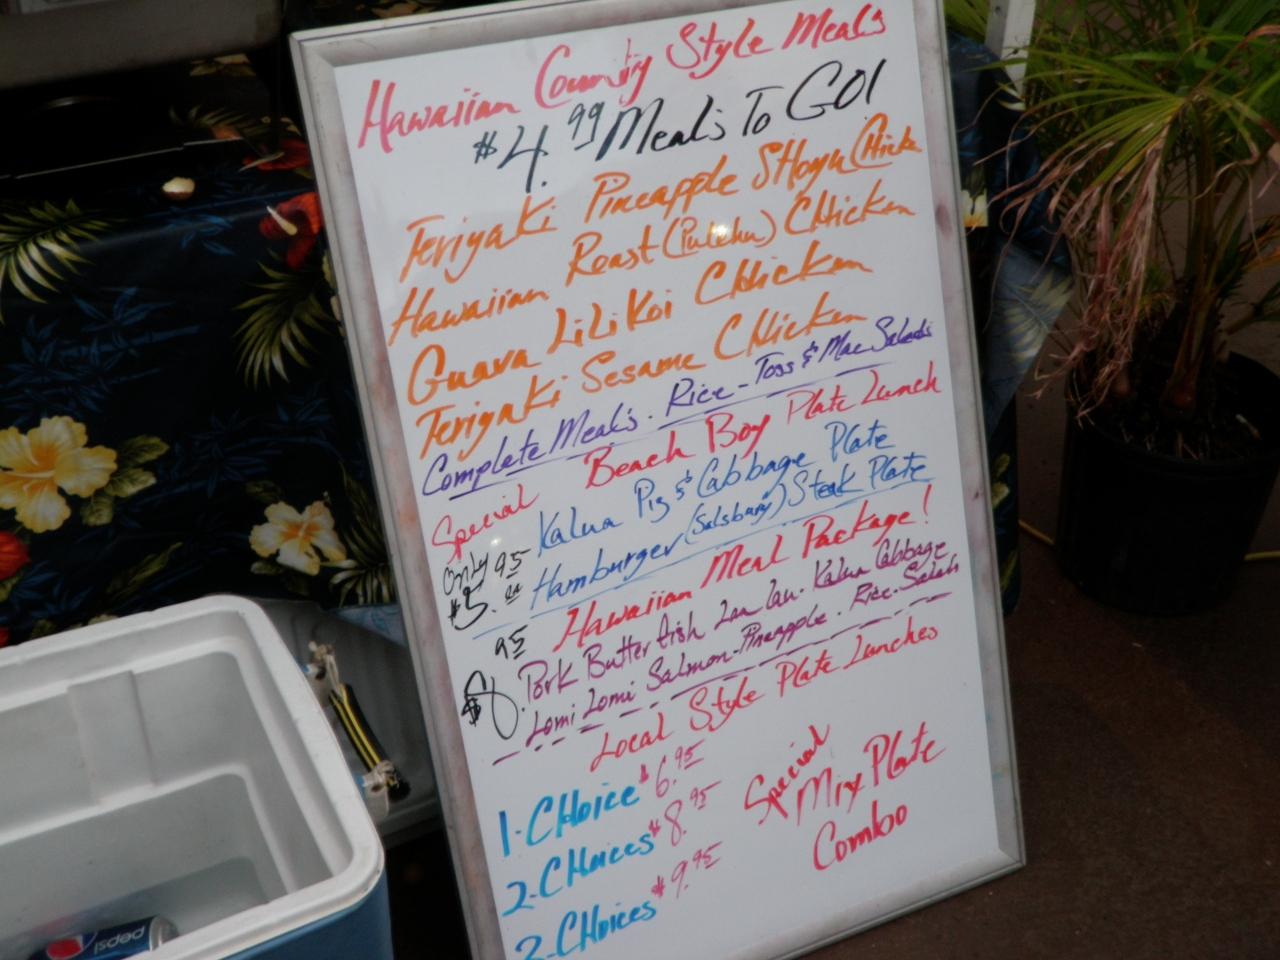 Hawaiian Country Style Meals
$4.99 Meals To GO!
Teriyaki Pineapple SHoyu CHicke
Hawaiian Roast (Pulehu) CHicken
Guava LiLiKoi CHicken
Teriyaki Sesame CHicken
Complete Meals. Rice - Toss & Mac Salads
Special Beach Boy Plate Lunch
Only $5.95 Kalua Pig & Cabbage Plate
Hamburger (Salsbury) Steak Plate
Hawaiian Meal Package!
$8.95 Pork Butterfish Lau Lau. Kalua Cabbage
Lomi Lomi Salmon-Pineapple. Rice-Salads
Local Style Plate Lunches
1-CHoice $6.95
2-CHoices $8.95
3-CHoices $9.95
Special
Mix Plate
Combo
pepsi